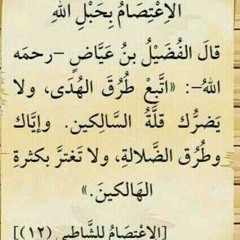 الاِعْتِصَامُ بِحَبْلِ اللهِ
قالَ الفُضَيْلُ بنُ عيَّاضٍ –رحمَه
اللهُ–: «اتَّبِعْ طُرُقَ الهُدَى، ولا
يَضرُّكَ قلَّةُ السَّالِكين. وإيَّاكَ
وطُرُقَ الضَّلالةِ، ولا تَغترَّ بكثرةِ
الهَالكينَ.»
[الاِعْتِصَامُ للشَّاطبي (١٢)]